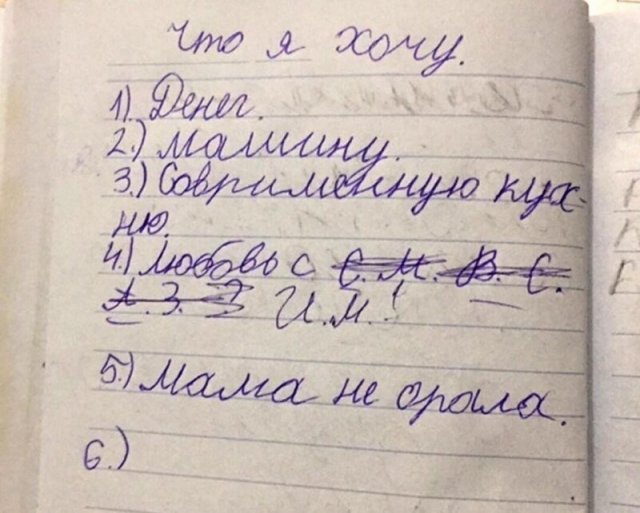 Что я хочу.
1) Денег.
2.) Машину.
3.) Современную кух-
ню.
4.) Любовь с С. М. В. С.
А. З. И.М.!
5.) Мама не орала.
6.)